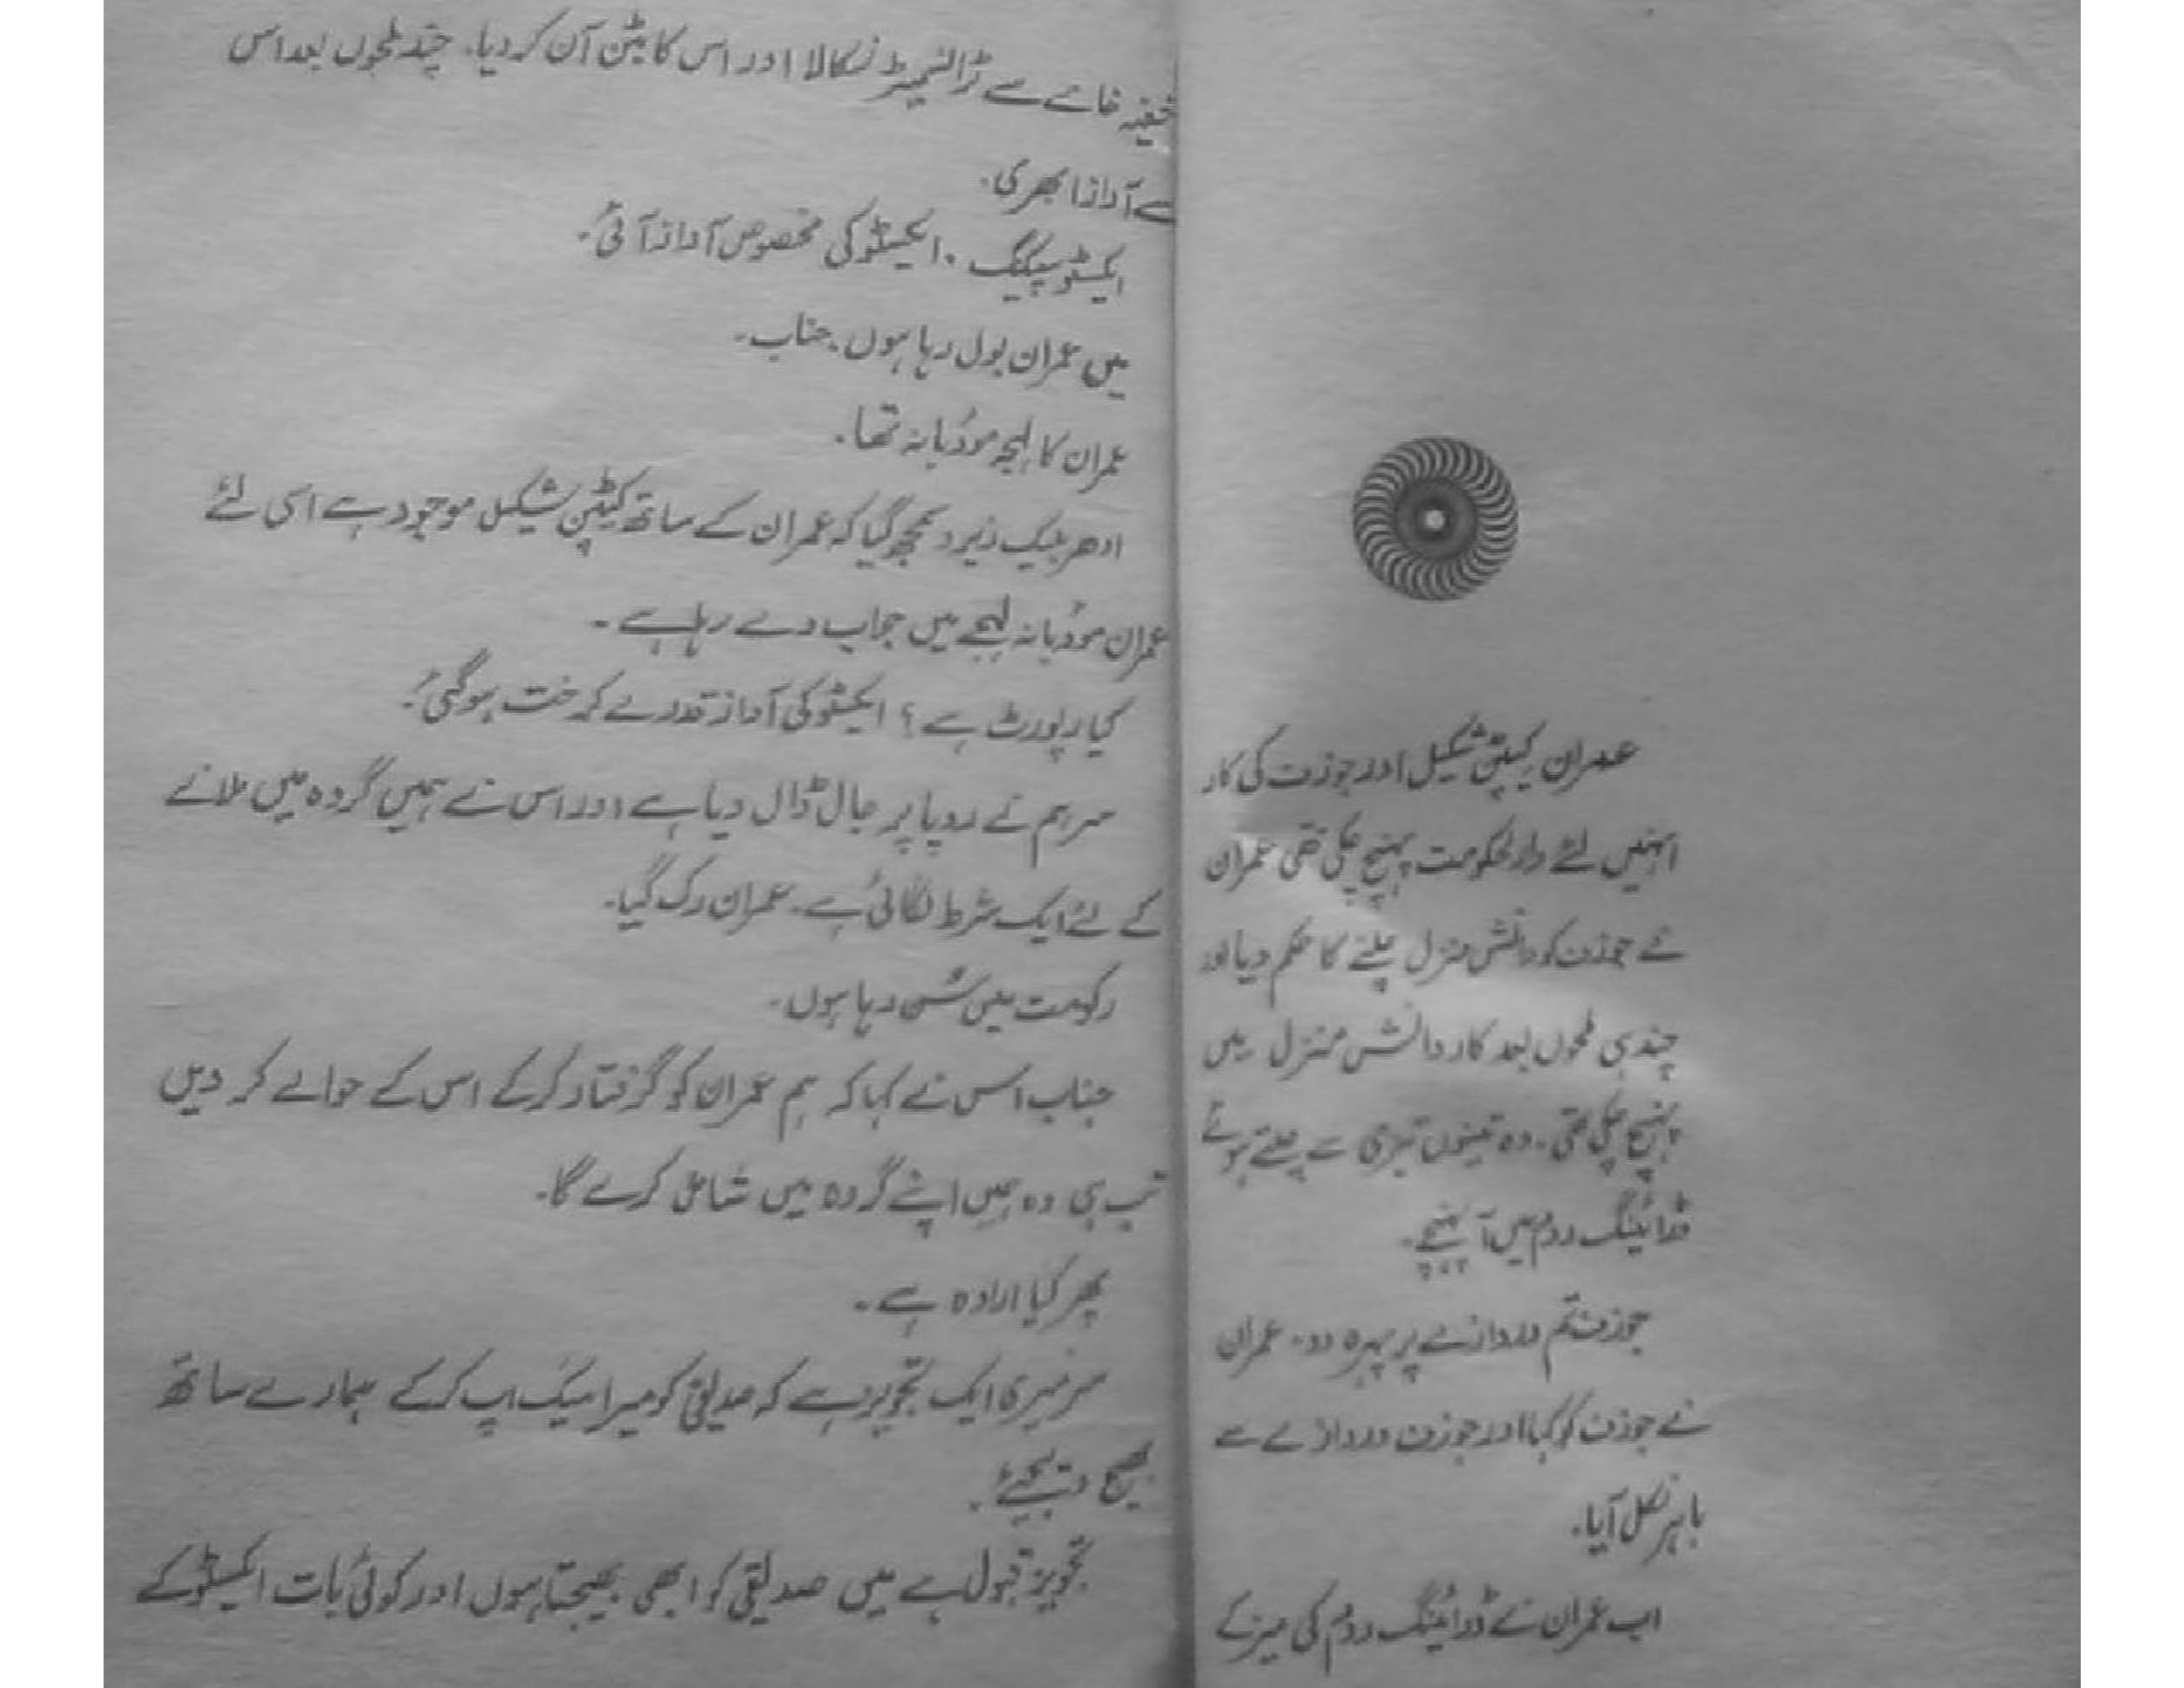 عمران کیپٹن شکیل اور جوزف کی کار
انہیں لئے دارلحکومت پہنچ چکی تھی عمران
نے جوزف کو دانش منزل چلنے کا حکم دیا اور
چند ہی لمحوں بعد کار دانش منزل میں
پہنچ چکی تھی۔ وہ تینوں تیزی سے چلتے ہوئے
ڈرائینگ روم میں آ پہنچے۔
جوزف تم دروازے پر پہرہ دو۔ عمران
نے جوزف کو کہا اور جوزف دروازے سے
باہر نکل آیا۔
اب عمران نے ڈرائینگ روم کی میز کے
خفیہ خانے سے ٹرانسمیٹر نکالا اور اس کا بٹن آن کر دیا۔ چند لمحوں بعد اس
سے آواز ابھری۔
ایکسٹو سپیکنگ۔ ایکسٹو کی مخصوص آواز آئی۔
میں عمران بول رہا ہوں۔ جناب۔
عمران کا لہجہ مودٔبانہ تھا۔
ادھر بلیک زیرو سمجھ گیا کہ عمران کے ساتھ کیپٹن شکیل موجود ہے اسی لئے
عمران مودٔبانہ لہجے میں جواب دے رہا ہے۔
کیا رپورٹ ہے؟ ایکسٹو کی آواز قدرے کرخت ہو گئی۔
سر ہم نے روپا پر جال ڈال دیا ہے اور اس نے ہمیں گروہ میں ملانے
کے لئے ایک شرط لگائی ہے۔ عمران رک گیا۔
رکومت میں سُن رہا ہوں۔
جناب اس نے کہا کہ ہم عمران کو گرفتار کر کے اس کے حوالے کر دیں
تب ہی وہ ہمیں اپنے گروہ میں شامل کرے گا۔
پھر کیا ارادہ ہے۔
سر میری ایک تجویز ہے کہ صدیقی کو میرا میک اپ کر کے ہمارے ساتھ
بھیج دیجیئے۔
تجویز قبول ہے میں صدیقی کو ابھی بھیجتا ہوں اور کوئی بات ایکسٹو کے